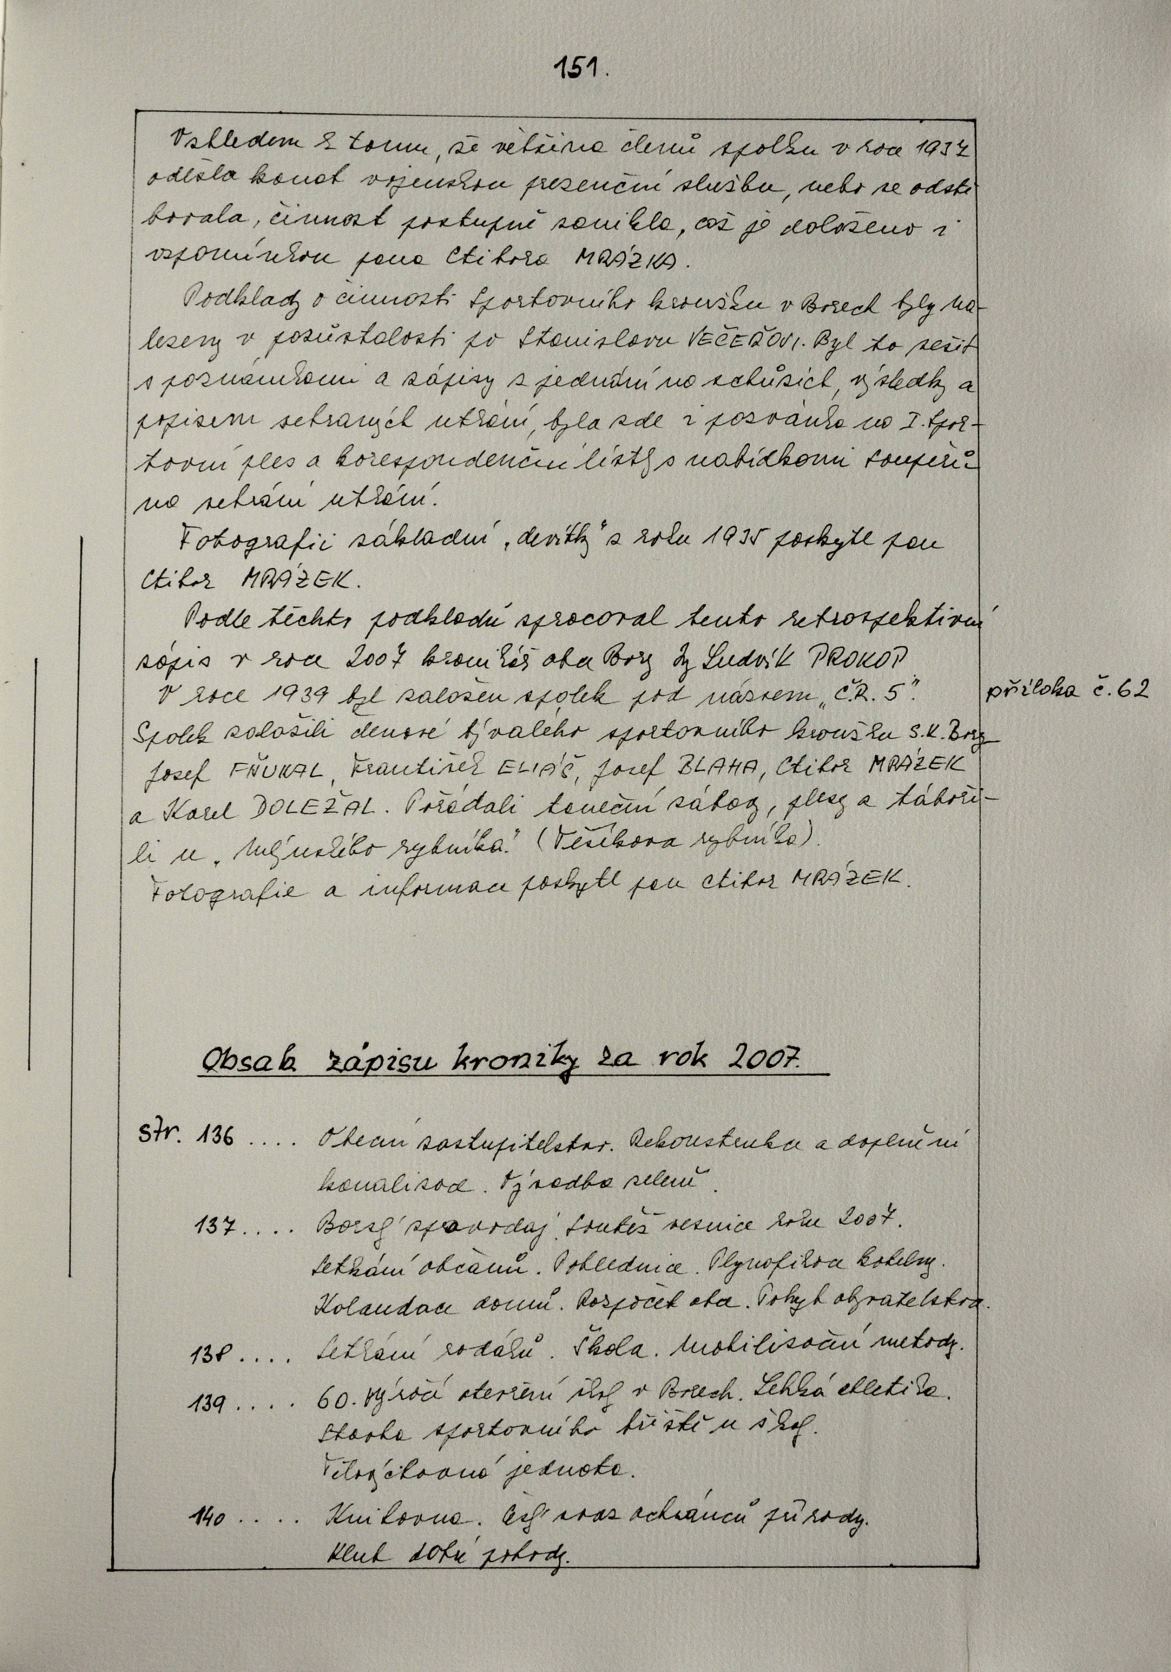 151.
Vzhledem k tomu, že většina členů spolku v roce 1937
odešla konat vojenskou presenční službu, nebo se odstě
hovala, činnost postupně zanikla, což je doloženo i
vzpomínkou pana Ctibora MRÁZKA.
Podklady o činnosti Sportovního kroužku v Borech byly na-
lezeny v pozůstalosti po Stanislavu VEČEŘOVI. Byl to sešit
s poznámkami a zápisy z jednání na schůzích, výsledky a
popisem sehraných utkání, byla zde i pozvánka na I. Spor-
tovní ples a korespondenční lístky s nabídkami soupeřů
na sehrání utkání.
Fotografii základní „devítky" z roku 1935 poskytl pan
Ctibor MRÁZEK.
Podle těchto podkladů zpracoval tento retrospektivní
zápis v roce 2007 kronikář obce Bory Ludvík PROKOP
V roce 1939 byl založen spolek pod názvem „Č.R. 5".
příloha č. 62
Spolek založili členové bývalého sportovního kroužku S.K. Bory
Josef FŇUKAL, František ELIÁŠ, Josef BLAHA, Ctibor MRÁZEK
a Karel DOLEŽAL. Pořádali taneční zábavy, plesy a táboři-
li u „Mlýnského rybníka." (Těšíkova rybníka).
Fotografie a informace poskytl pan Ctibor MRÁZEK.
Obsah zápisu kroniky za rok 2007.
str. 136 .... Obecní zastupitelstvo. Rekonstrukce a doplnění
kanalizace. Výsadba zeleně.
137 .... Borský zpravodaj. Soutěž vesnice roku 2007.
Setkání občanů. Pohlednice. Plynofikace kotelny.
Kolaudace domů. Rozpočet obce. Pohyb obyvatelstva.
138 .... Setkání rodáků. Škola. Mobilizační metody.
139 .... 60. výročí otevření školy v Borech. Lehká atletika.
Stavba sportovního hřiště u školy.
Tělovýchovná jednota.
140 .... Knihovna. Český svaz ochránců přírody.
Klub dobré pohody.